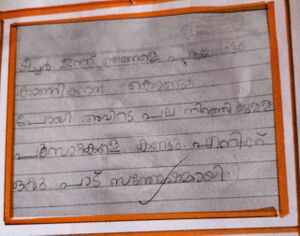 ടീച്ചർ ഇന്ന് ഞങ്ങളെ പൂമ്പാറ്റയെ
കാണിക്കാൻ കൊണ്ടു
പോയി അവിടെ പല നിറത്തിലുള്ള
കണ്ടു. എനിക്ക്
ഒരു പാട് സന്തോഷമായി